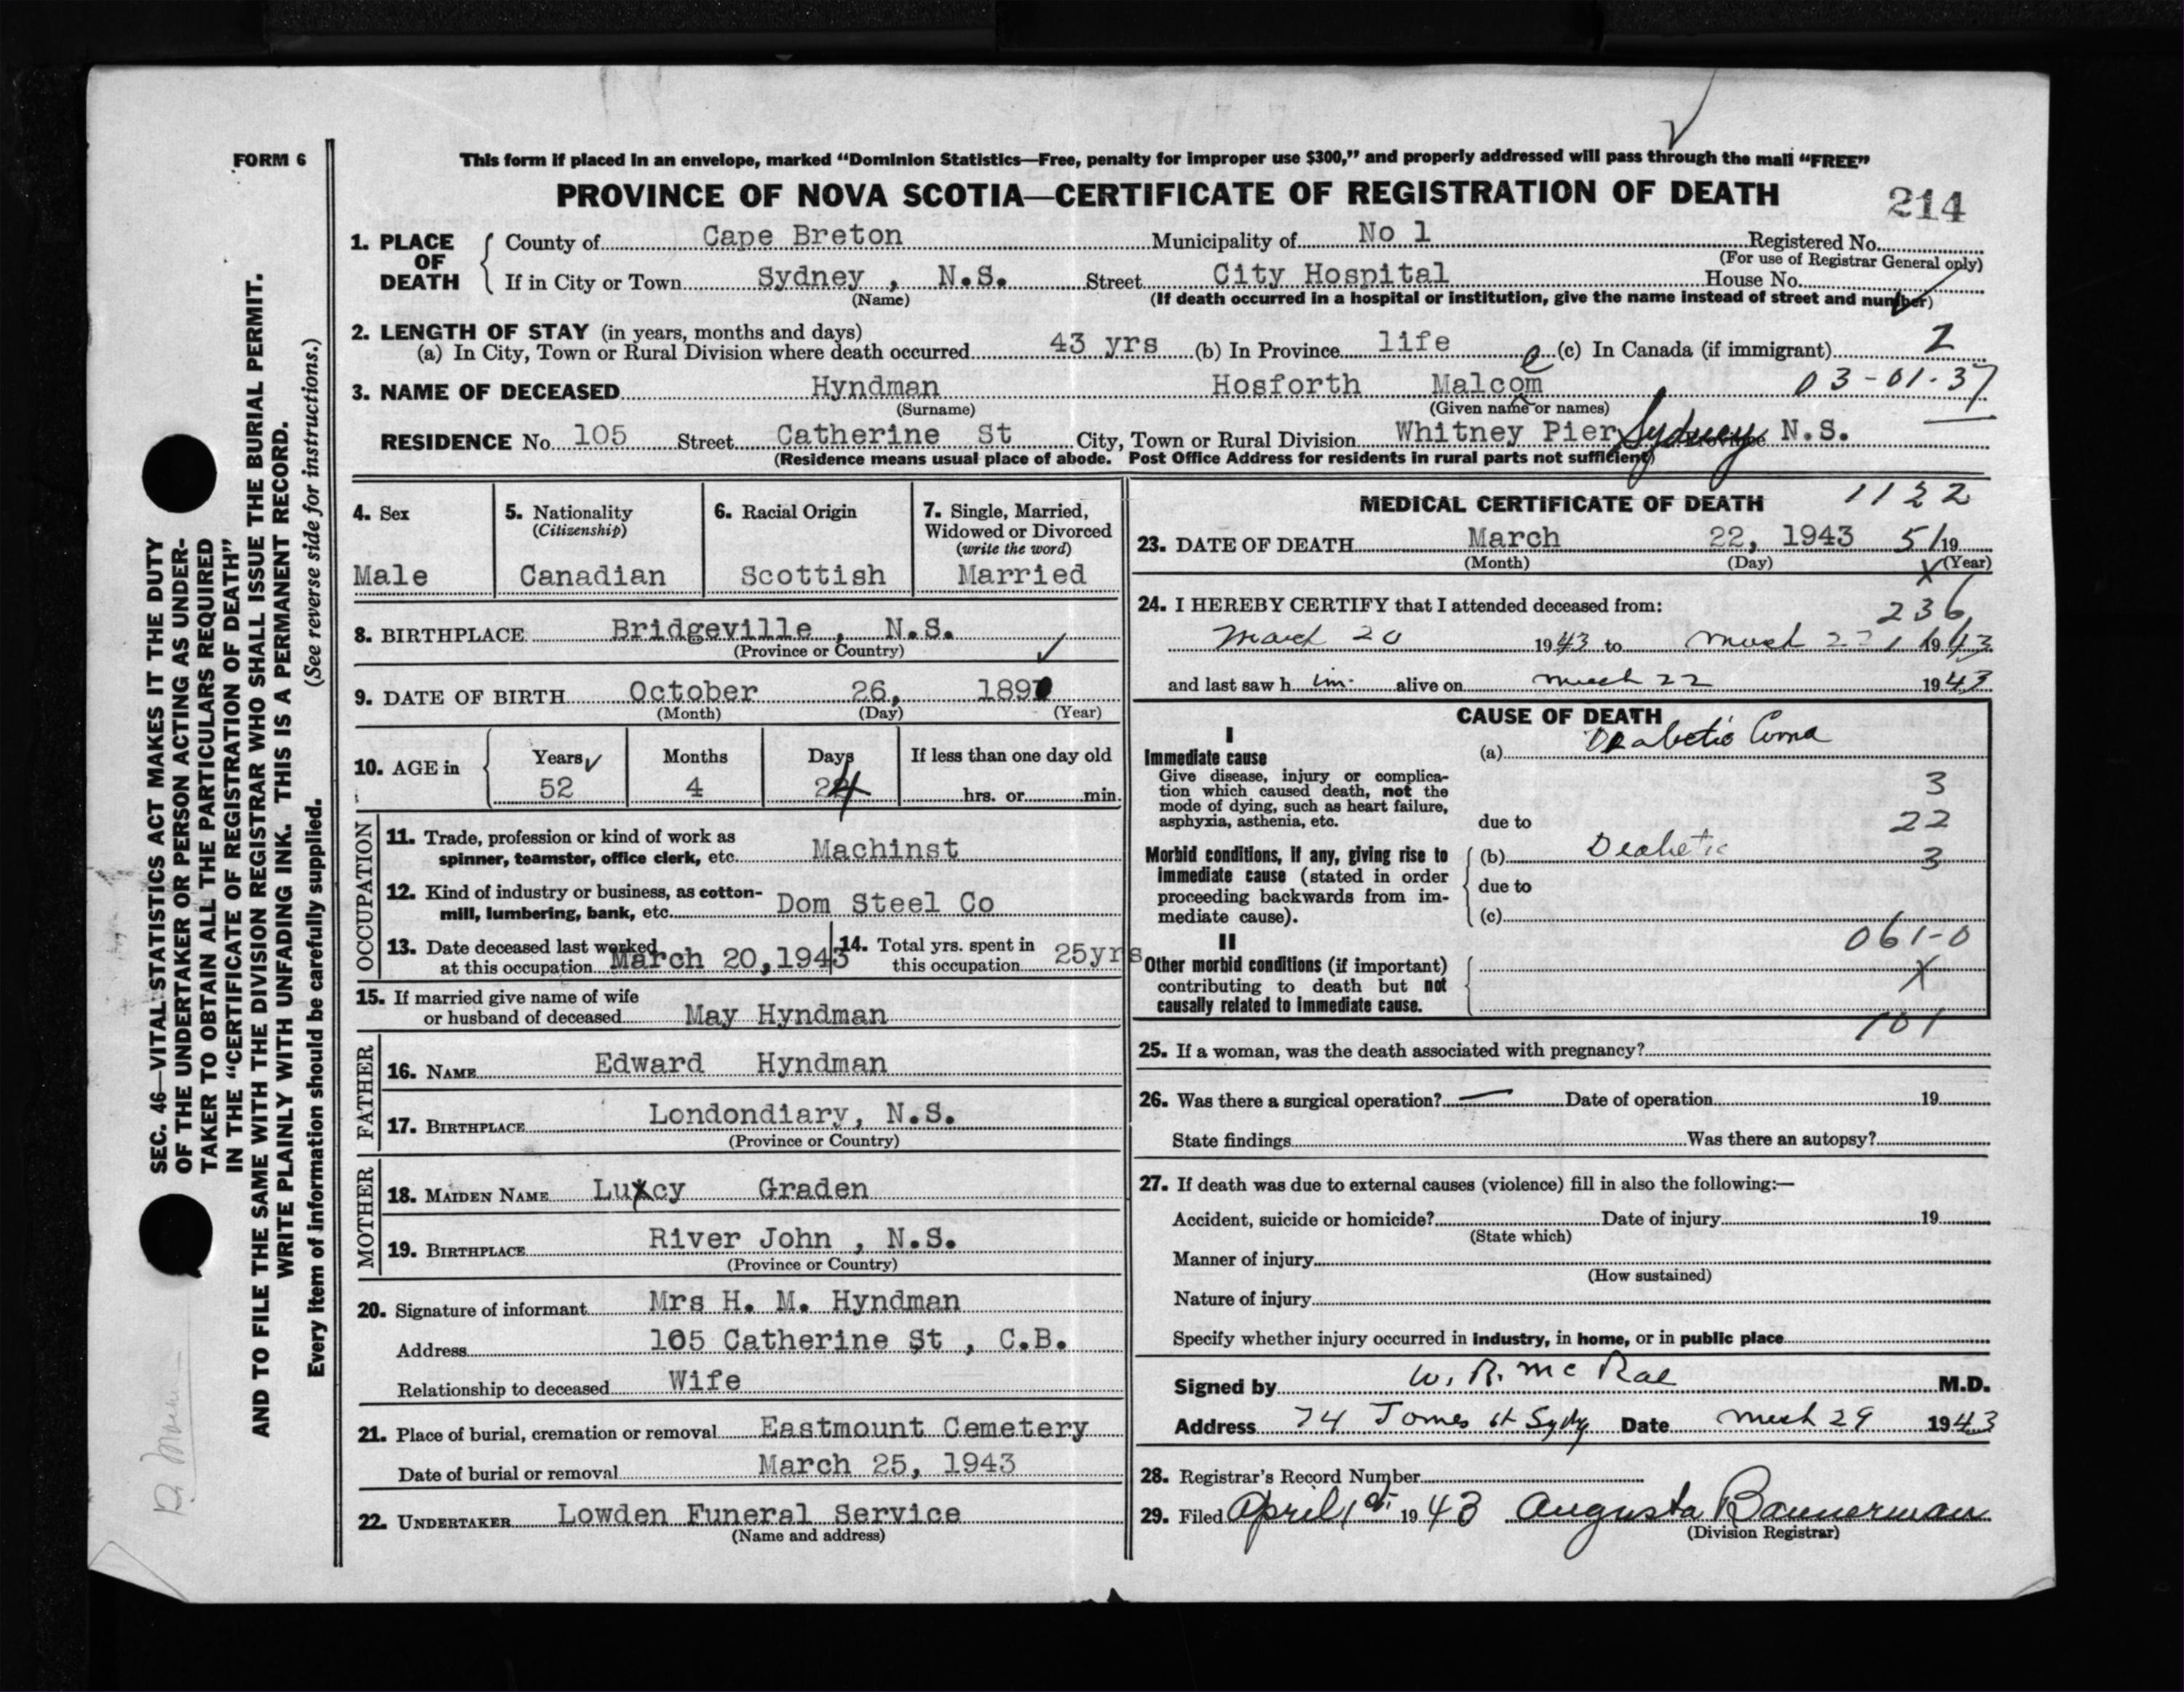 FORM 6
This form if placed in an envelope, marked “Dominion Statistics—Free, penalty for improper use $300,” and properly addressed will pass through the mail “FREE”
PROVINCE OF NOVA SCOTIA—CERTIFICATE OF REGISTRATION OF DEATH
214
1. PLACE OF DEATH
County of Cape Breton Municipality of No 1 Registered No.
(For use of Registrar General only)
If in City or Town Sydney , N.S. Street City Hospital House No.
(Name) (If death occurred in a hospital or institution, give the name instead of street and number)
2. LENGTH OF STAY (in years, months and days)
(a) In City, Town or Rural Division where death occurred 43 yrs (b) In Province life (c) In Canada (if immigrant) 2
3. NAME OF DECEASED Hyndman Hosforth Malcom 03-01-37
(Surname) (Given name or names)
RESIDENCE No. 105 Street Catherine St City, Town or Rural Division Whitney Pier Sydney N.S.
(Residence means usual place of abode. Post Office Address for residents in rural parts not sufficient)
4. Sex
Male
5. Nationality
(Citizenship)
Canadian
6. Racial Origin
Scottish
7. Single, Married,
Widowed or Divorced
(write the word)
Married
8. BIRTHPLACE Bridgeville , N.S.
(Province or Country)
9. DATE OF BIRTH October 26, 1890
(Month) (Day) (Year)
10. AGE in
Years Months Days If less than one day old
52 4 24 hrs. or min.
OCCUPATION
11. Trade, profession or kind of work as
spinner, teamster, office clerk, etc. Machinst
12. Kind of industry or business, as cotton-
mill, lumbering, bank, etc. Dom Steel Co
13. Date deceased last worked
at this occupation March 20,1943
14. Total yrs. spent in
this occupation 25yrs
15. If married give name of wife
or husband of deceased May Hyndman
FATHER
16. NAME Edward Hyndman
17. BIRTHPLACE Londondiary, N.S.
(Province or Country)
MOTHER
18. MAIDEN NAME Luxcy Graden
19. BIRTHPLACE River John , N.S.
(Province or Country)
20. Signature of informant Mrs H. M. Hyndman
Address 105 Catherine St , C.B.
Relationship to deceased Wife
21. Place of burial, cremation or removal Eastmount Cemetery
Date of burial or removal March 25, 1943
22. UNDERTAKER Lowden Funeral Service
(Name and address)
MEDICAL CERTIFICATE OF DEATH 1122
23. DATE OF DEATH March 22, 1943 51 19
(Month) (Day) (Year)
X
24. I HEREBY CERTIFY that I attended deceased from: 236
March 20 1943 to March 22 1943
and last saw h im alive on March 22 1943
CAUSE OF DEATH
I
Immediate cause
Give disease, injury or complica-
tion which caused death, not the
mode of dying, such as heart failure,
asphyxia, asthenia, etc.
(a) Diabetic Coma
3
due to 22
Morbid conditions, if any, giving rise to
immediate cause (stated in order
proceeding backwards from im-
mediate cause).
(b) Diabetic 3
due to
(c)
061-0
II
Other morbid conditions (if important)
contributing to death but not
causally related to immediate cause.
X
101
25. If a woman, was the death associated with pregnancy?
26. Was there a surgical operation? — Date of operation 19
State findings Was there an autopsy?
27. If death was due to external causes (violence) fill in also the following:—
Accident, suicide or homicide? Date of injury 19
(State which)
Manner of injury
(How sustained)
Nature of injury
Specify whether injury occurred in industry, in home, or in public place
Signed by W. R. McRae M.D.
Address 74 James St Sydy Date March 29 1943
28. Registrar's Record Number
29. Filed April 1st 1943 Augusta Bannerman
(Division Registrar)
SEC. 46—VITAL STATISTICS ACT MAKES IT THE DUTY
OF THE UNDERTAKER OR PERSON ACTING AS UNDER-
TAKER TO OBTAIN ALL THE PARTICULARS REQUIRED
IN THE “CERTIFICATE OF REGISTRATION OF DEATH”
AND TO FILE THE SAME WITH THE DIVISION REGISTRAR WHO SHALL ISSUE THE BURIAL PERMIT.
WRITE PLAINLY WITH UNFADING INK. THIS IS A PERMANENT RECORD.
Every item of information should be carefully supplied. (See reverse side for instructions.)